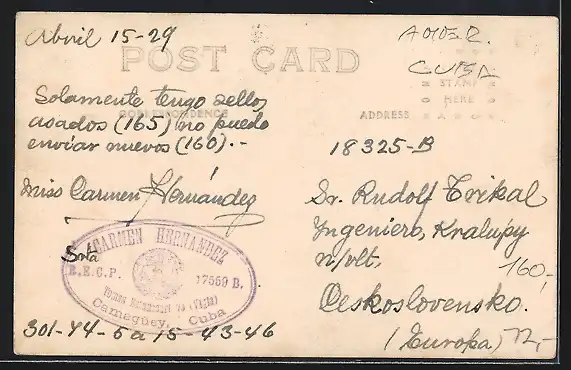 Abril 15-29
POST CARD
CUBA
STAMP
HERE
Solamente tengo sellos
usados (165) no puedo
enviar nuevos (160).-
CORRESPONDENCE
ADDRESS
Miss Carmen Hernandez
18325-B
Sr. Rudolf Trikal
Ingeniero, Kralupy
n/vlt.
Ceskoslovensko.
(Europa)
160,-
72,-
Srta
CARMEN HERNANDEZ
B.E.C.P.
17559 B.
Camagüey, Cuba
301-44-5 a 15-43-46